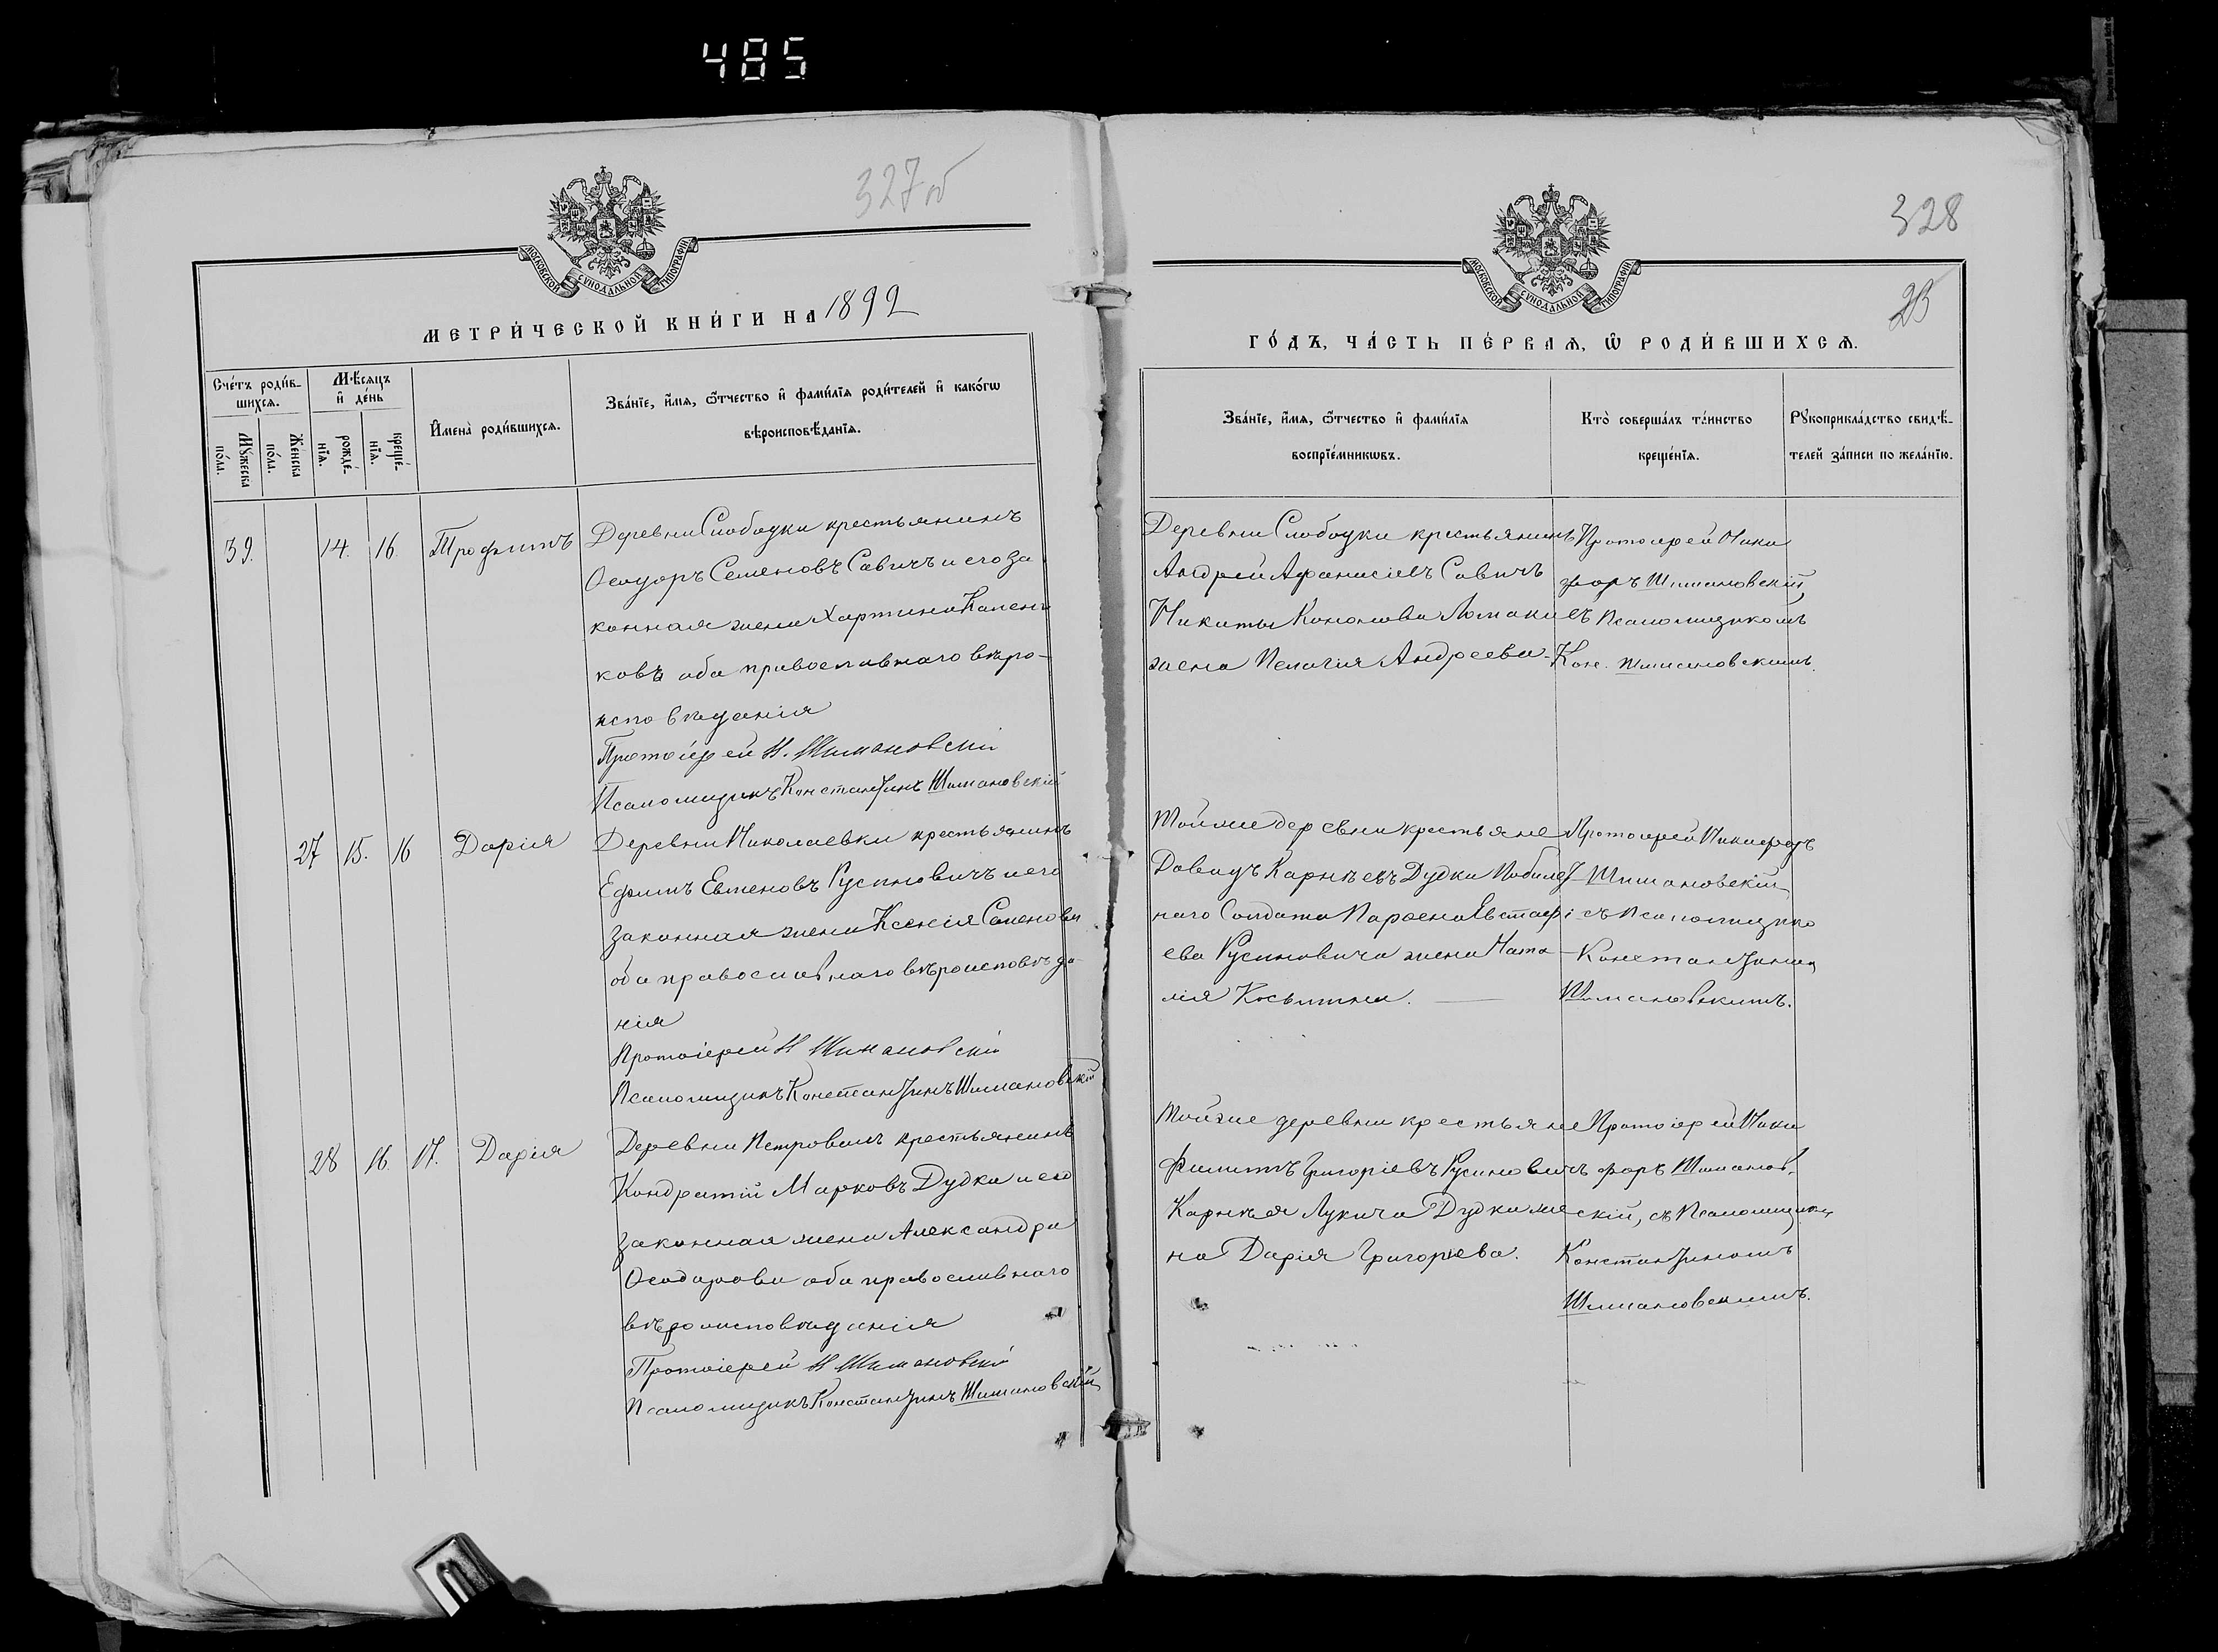 485
327об
МОСКОВСКОЙ СУНОДАЛЬНОЙ ТИПОГРАФІИ
МЕТРИ́ЧЕСКОЙ КНИ́ГИ НА 1892
Сче́тъ роди́в-
шихсѧ.
Мѣ́сѧцъ
и҆ де́нь
Мꙋ́жеска
по́ла.
Же́нска
по́ла.
рожде́-
нїѧ.
креще́-
нїѧ.
И҆мена̀ роди́вшихсѧ.
Зва́нїе, и҆́мѧ, ѻ҆́тчество и҆ фами́лїѧ роди́телей и҆ како́гѡ
вѣроисповѣ́данїѧ.
39. 14. 16. Трофимъ
Деревни Слободки крестьянинъ
Ѳеодоръ Семеновъ Савичъ и его за
конная жена Хартина
ковъ оба православнаго вѣро-
исповѣданія
Протоіерей Н. Шимановскій
Псаломщикъ Константинъ Шимановскій
27 15. 16 Дарія
Деревни Николаевки крестьянинъ
Ефимъ Евменовъ Русиновичъ и его
законная жена Ксенія Семенова
оба православнаго вѣроисповѣда-
нія
Протоіерей Н Шимановскій
Псаломщикъ Константинъ Шимановскій
28 16. 17. Дарія
Деревни Петровичъ крестьянинъ
Кондратій Марковъ Дудка и его
законная жена Александра
Ѳеодорова оба православнаго
вѣроисповѣданія
Протоіерей Н Шимановскій
Псаломщикъ Константинъ Шимановскій
328
23
МОСКОВСКОЙ СУНОДАЛЬНОЙ ТИПОГРАФІИ
ГО́ДЪ, ЧА́СТЬ ПЕ́РВАѦ, Ѡ҆ РОДИ́ВШИХСѦ.
Зва́нїе, и҆́мѧ, ѻ҆́тчество и҆ фами́лїѧ
воспрїе́мникѡвъ.
Кто̀ соверша́лъ та́инство
креще́нїѧ.
Рꙋкоприкла́дство свидѣ́-
телей за́писи по жела́нїю.
Деревни Слободки крестьянинъ
Андрей Афанасіевъ Савичъ
Никиты Кононова Ломаки
жена Пелагія Андреева.
Протоіерей Ники
форъ Шимановскій,
съ Псаломщикомъ
Кон. Шимановскимъ.
Той же деревни крестьяне
Давидъ Карнѣевъ Дудка
наго Солдата Парѳена Евстафі
ева Русиновича жена Ната
лія Косьмина.
Протоіерей Никифоръ
Шимановскій
съ Псаломщико
Константином
Шимановскимъ.
Той же деревни крестьяне
Филипъ Григоріевъ Русиновичъ
Карнѣя Лукича Дудки же
на Дарія Григорьева.
Протоіерей Ники
форъ Шиманов-
скій, съ Псаломщиком
Константиномъ
Шимановскимъ.